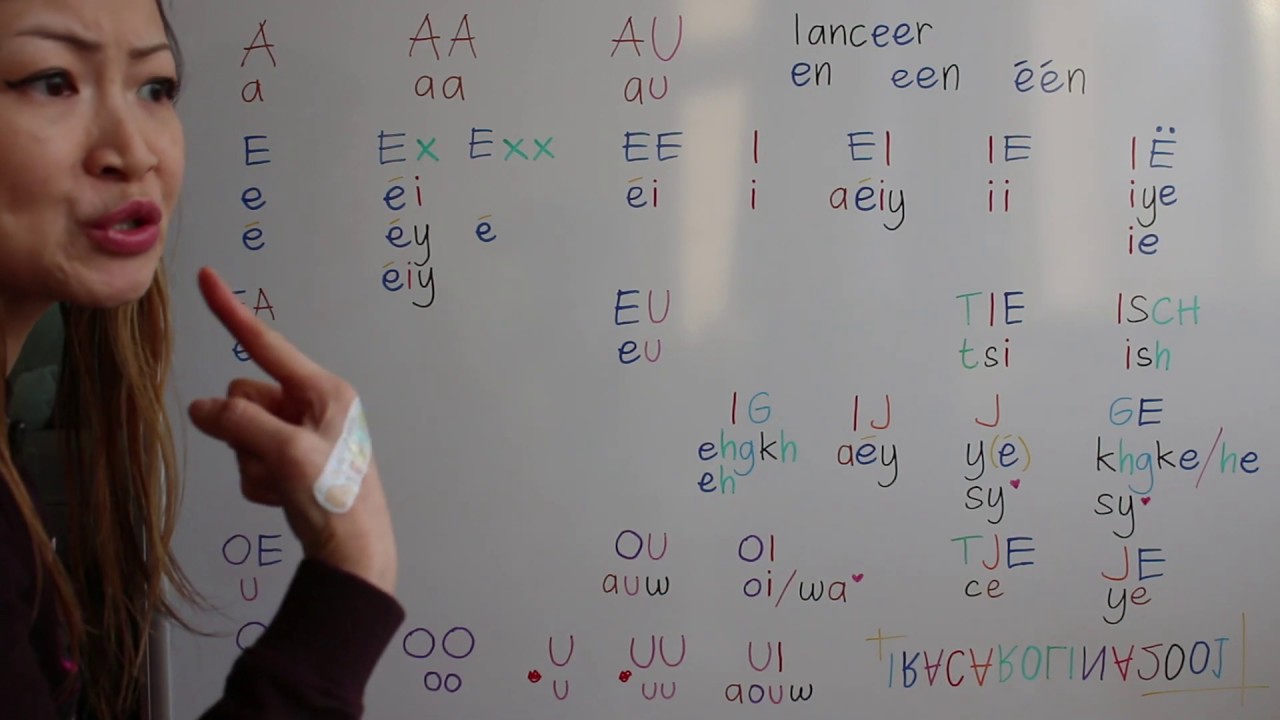 A AA AU lanceer
a aa au en een één
E Ex Exx EE I EI IE IË
e ēi ēi i aēiy ii iye
ē ēy ē ie
ēiy
A EU TIE ISCH
eu tsi ish
IG IJ J GE
ehgkh aēy y(ē) khgke/he
eh sy♥ sy♥
OE OU OI TJE JE
u auw oi/wa♥ ce ye
O OO U UU UI IRACAROLINAJOOT
oo u uu aouw